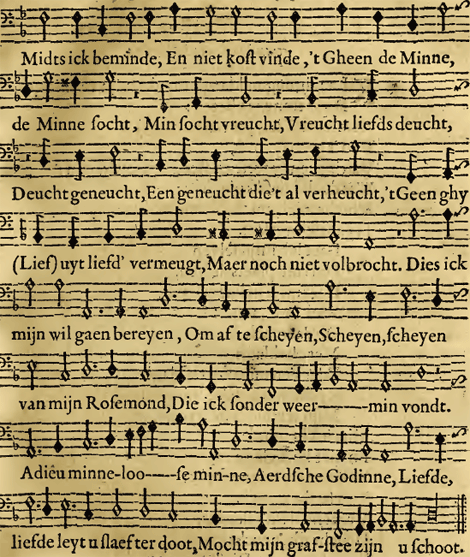 Midts ick beminde, En niet kost vinde, 't Gheen de Minne,
de Minne socht, Min socht vreucht, Vreucht liefds deucht,
Deucht geneucht, Een geneucht die't al verheucht, 't Geen ghy
(Lief) uyt liefd' vermeugt, Maer noch niet volbrocht. Dies ick
mijn wil gaen bereyen, Om af te scheyen, Scheyen, scheyen
van mijn Rosemond, Die ick sonder weer——min vondt.
Adieu minne-loo——se min-ne, Aerdsche Godinne, Liefde,
liefde leyt u slaef ter doot, Mocht mijn graf-stee zijn u schoot.